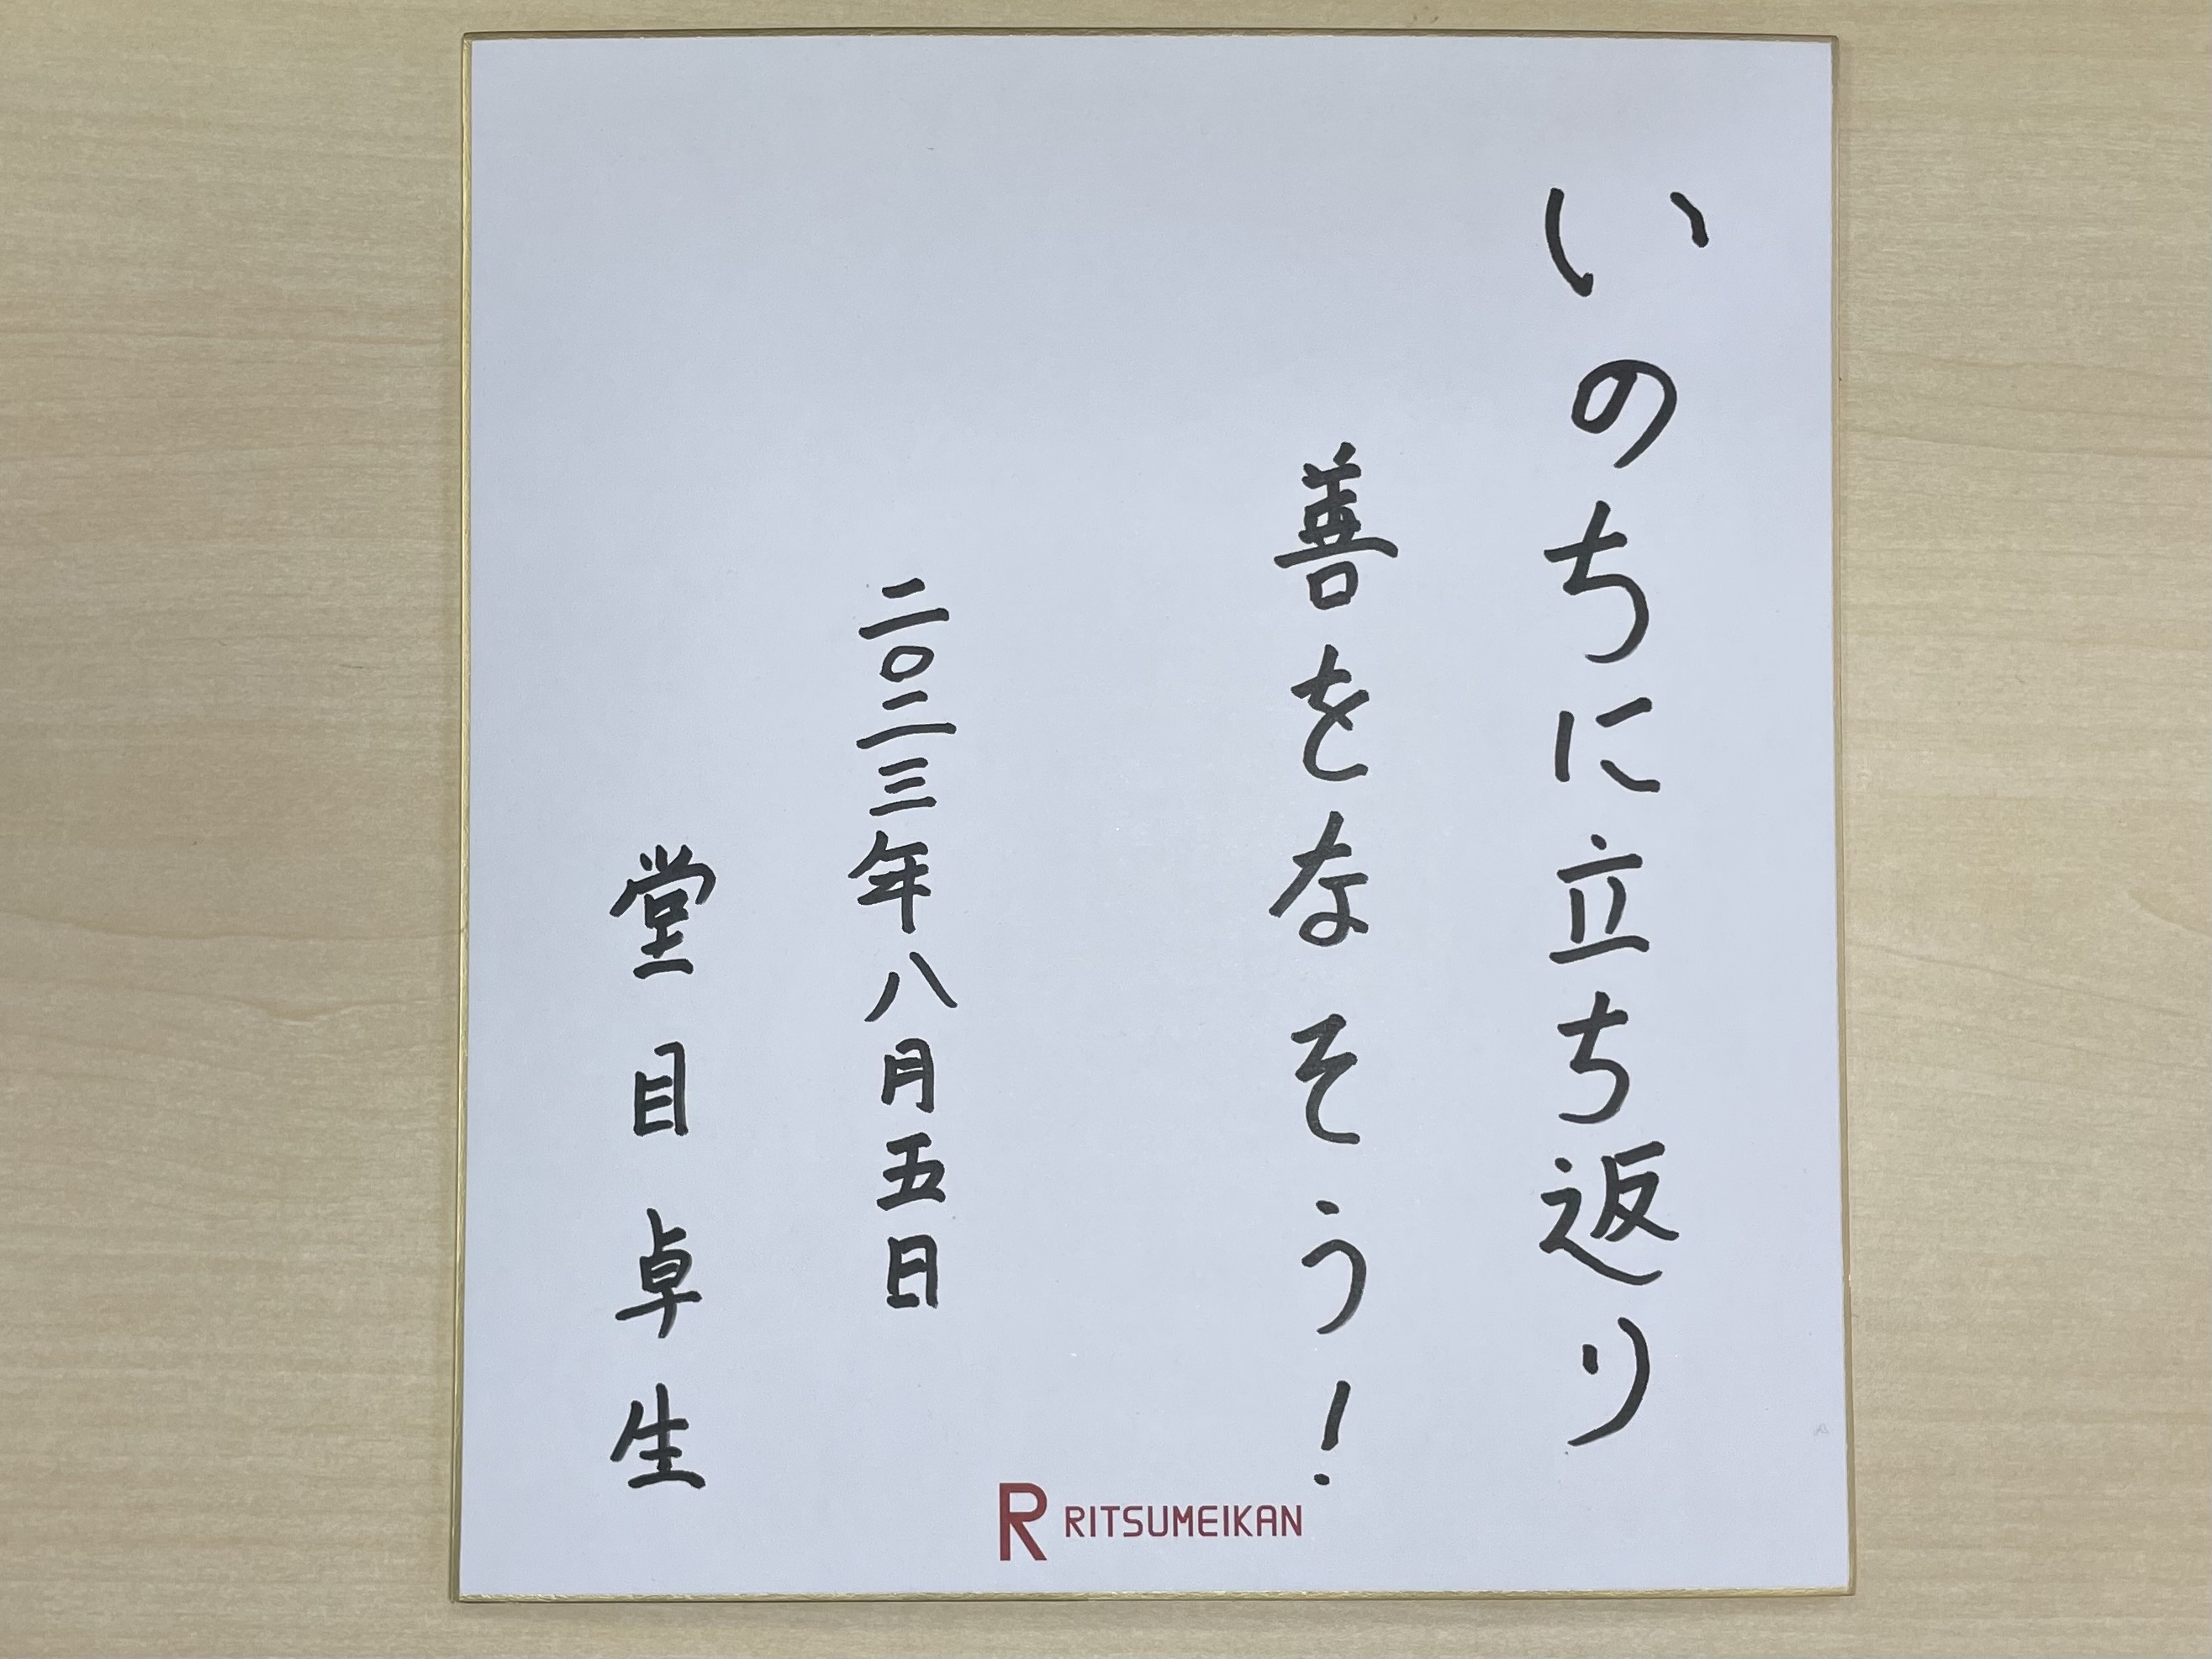 いのちに立ち返り
善をなそう!
二〇二三年八月五日
堂目卓生
R RITSUMEIKAN